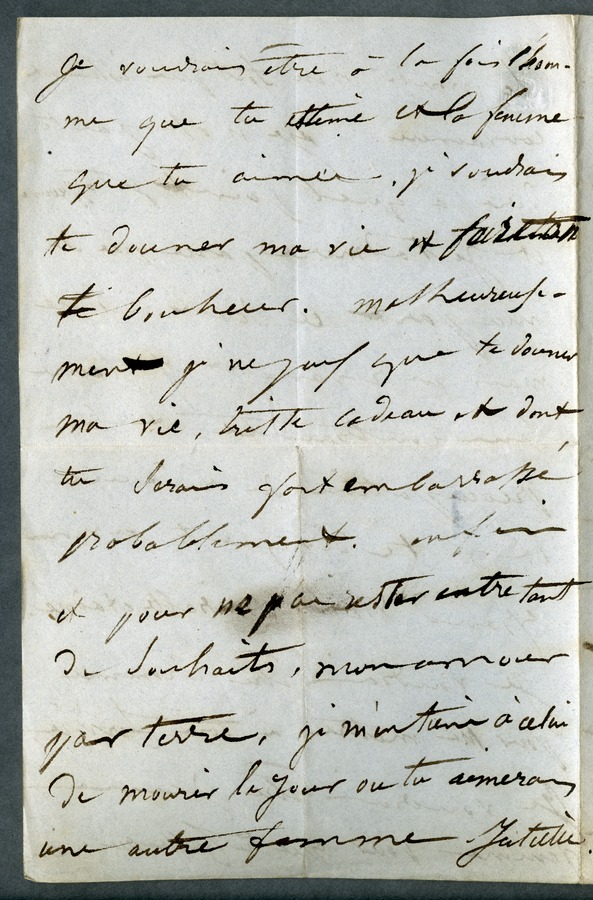 Je voudrais être à la fois l'hom-
me que tu estime et la femme
que tu aimée, je voudrais
te donner ma vie et faire ton
bonheur. malheureuse-
ment je ne puis que te donner
ma vie, triste cadeau et dont
tu serais fort embarrassé
probablement. enfin
et pour ne pas rester entre tant
de souhaits, mon amour
par terre, je m'en tiens à celui
de mourir le jour où tu aimeras
une autre femme Juliette.